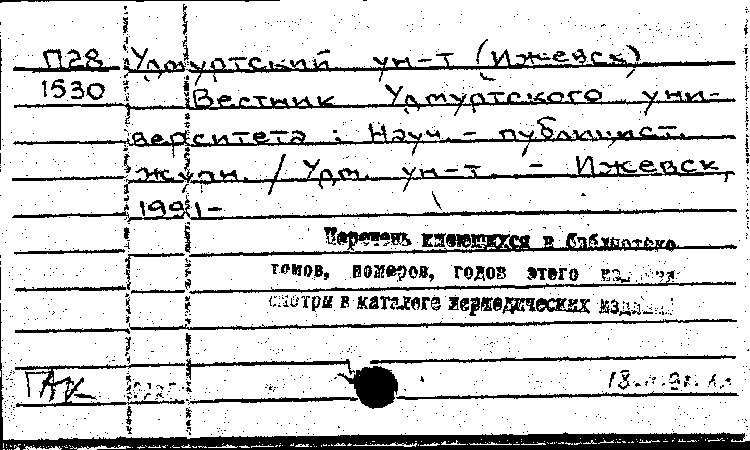 П28 Удмуртский ун-т (Ижевск)
1530 Вестник Удмуртского уни-
верситета : Науч. - публицист.
журн. / Удм. ун-т. - Ижевск,
1991-
Перечень имеющихся в библиотеке
томов, номеров, годов этого издания
смотри в каталоге периодических изданий
ГАК